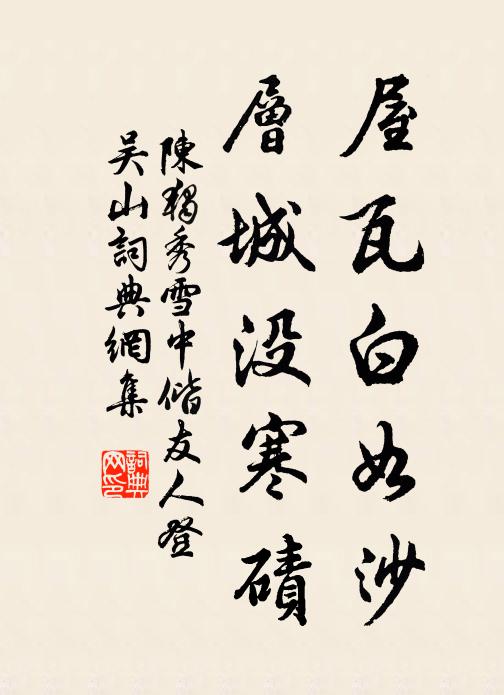 屋瓦白如沙
層城没寒磧
陳獨秀雪中偕友人登
吴山詞典網集
詞典
网印